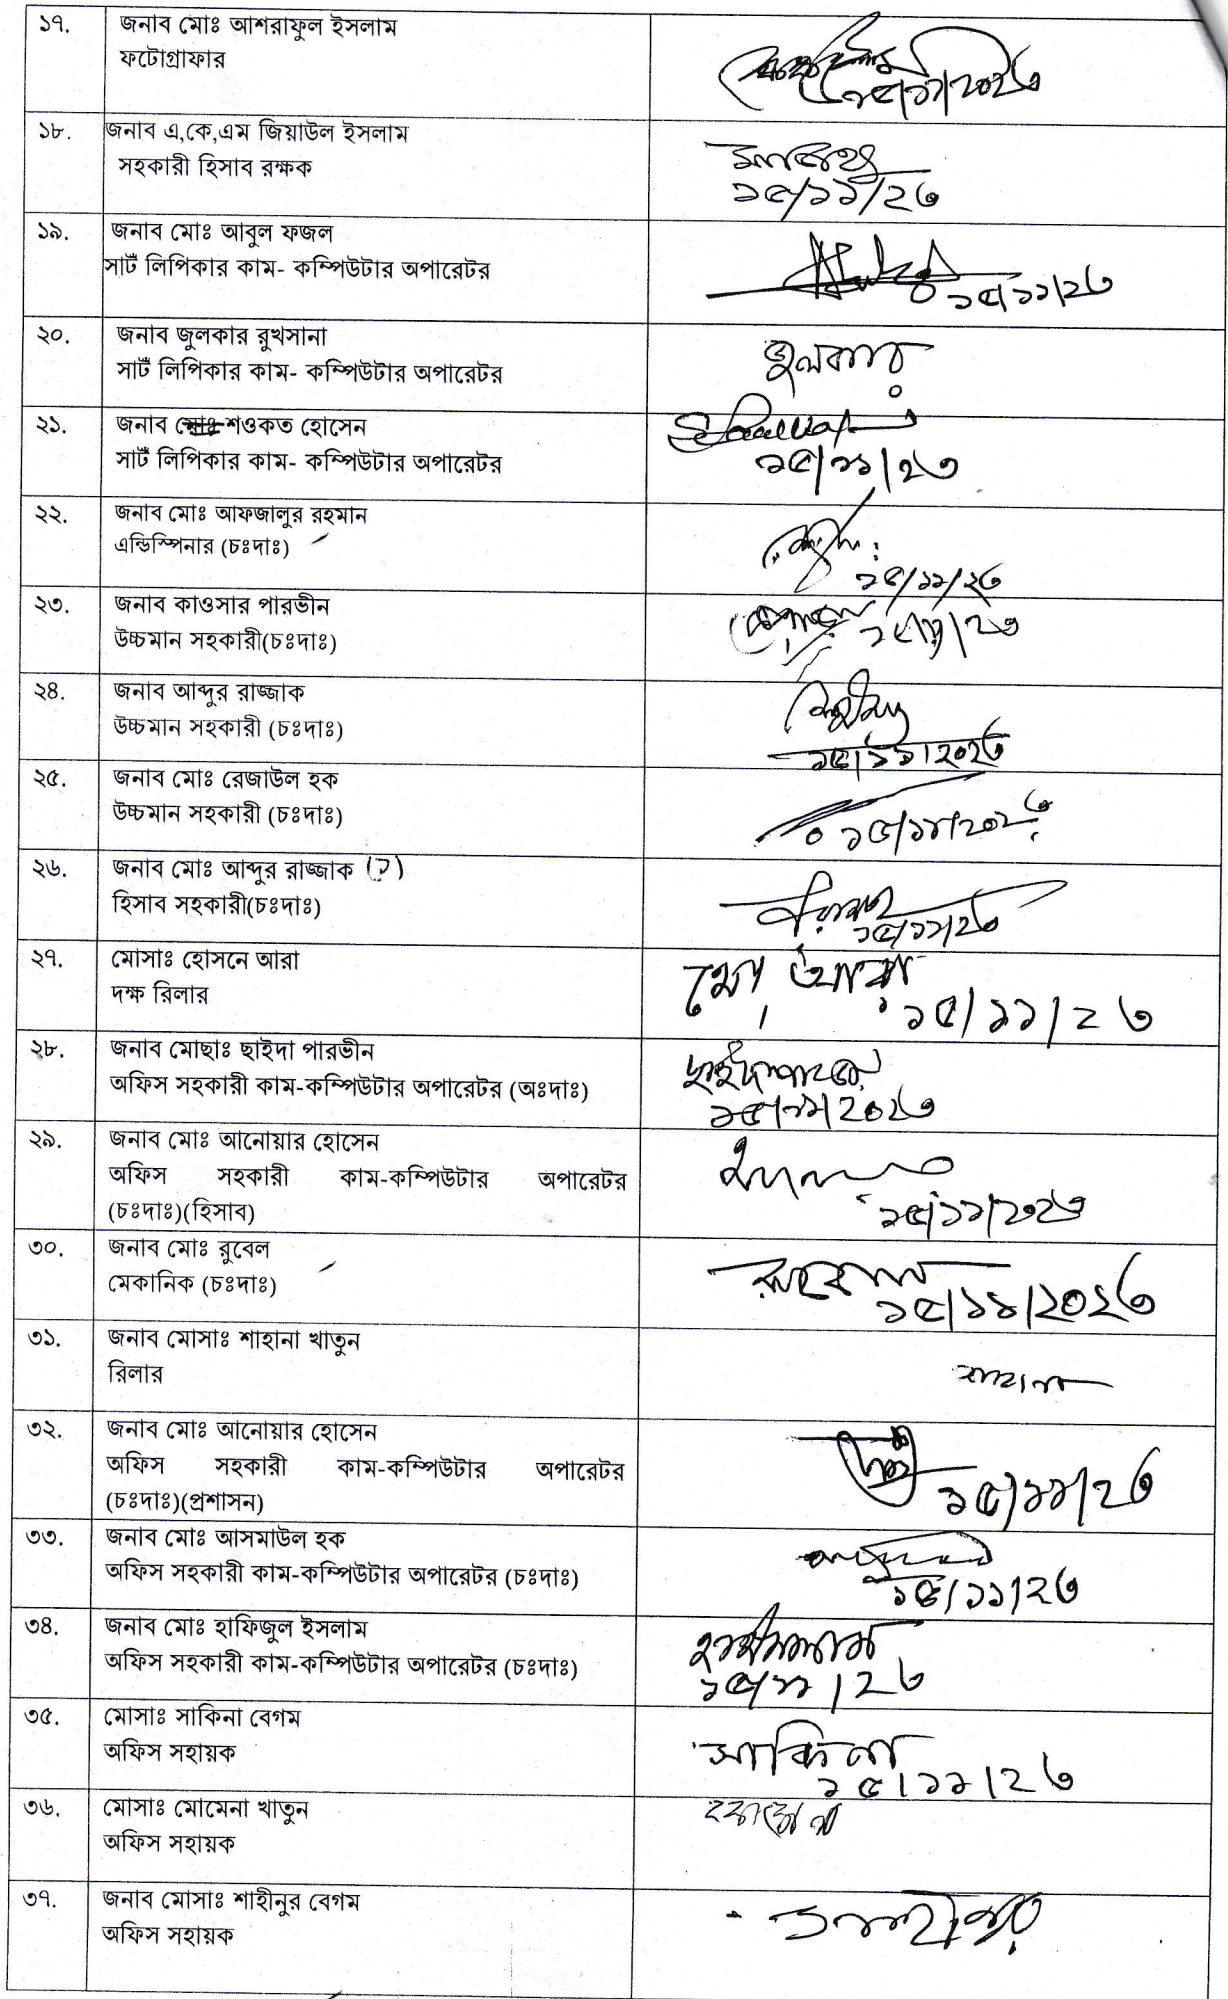 ১৭. জনাব মোঃ আশরাফুল ইসলাম
ফটোগ্রাফার
১৫/১১/২০২৩
১৮. জনাব এ,কে,এম জিয়াউল ইসলাম
সহকারী হিসাব রক্ষক
১৫/১১/২৩
১৯. জনাব মোঃ আবুল ফজল
সার্ট লিপিকার কাম- কম্পিউটার অপারেটর
১৫/১১/২৩
২০. জনাব জুলকার রুখসানা
সার্ট লিপিকার কাম- কম্পিউটার অপারেটর
জুলকার
২১. জনাব মোঃ শওকত হোসেন
সার্ট লিপিকার কাম- কম্পিউটার অপারেটর
১৫/১১/২৩
২২. জনাব মোঃ আফজালুর রহমান
এন্ডিস্পিনার (চঃদাঃ)
১৫/১১/২৩
২৩. জনাব কাওসার পারভীন
উচ্চমান সহকারী(চঃদাঃ)
১৫/১১/২৩
২৪. জনাব আব্দুর রাজ্জাক
উচ্চমান সহকারী (চঃদাঃ)
১৫/১১/২০২৩
২৫. জনাব মোঃ রেজাউল হক
উচ্চমান সহকারী (চঃদাঃ)
১৫/১১/২০২৩
২৬. জনাব মোঃ আব্দুর রাজ্জাক (১)
হিসাব সহকারী(চঃদাঃ)
১৫/১১/২৩
২৭. মোসাঃ হোসনে আরা
দক্ষ রিলার
১৫/১১/২৩
২৮. জনাব মোছাঃ ছাইদা পারভীন
অফিস সহকারী কাম-কম্পিউটার অপারেটর (অঃদাঃ)
১৫/১১/২০২৩
২৯. জনাব মোঃ আনোয়ার হোসেন
অফিস সহকারী কাম-কম্পিউটার অপারেটর
(চঃদাঃ)(হিসাব)
১৫/১১/২০২৩
৩০. জনাব মোঃ রুবেল
মেকানিক (চঃদাঃ)
১৫/১১/২০২৩
৩১. জনাব মোসাঃ শাহানা খাতুন
রিলার
৩২. জনাব মোঃ আনোয়ার হোসেন
অফিস সহকারী কাম-কম্পিউটার অপারেটর
(চঃদাঃ)(প্রশাসন)
১৫/১১/২৩
৩৩. জনাব মোঃ আসমাউল হক
অফিস সহকারী কাম-কম্পিউটার অপারেটর (চঃদাঃ)
১৫/১১/২৩
৩৪. জনাব মোঃ হাফিজুল ইসলাম
অফিস সহকারী কাম-কম্পিউটার অপারেটর (চঃদাঃ)
১৫/১১/২৩
৩৫. মোসাঃ সাকিনা বেগম
অফিস সহায়ক
সাকিনা
১৫/১১/২৩
৩৬. মোসাঃ মোমেনা খাতুন
অফিস সহায়ক
৩৭. জনাব মোসাঃ শাহীনুর বেগম
অফিস সহায়ক